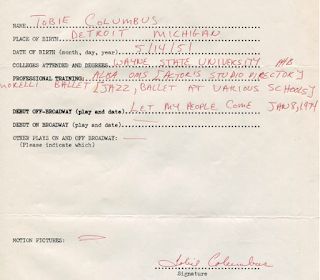 NAME TOBIE COLUMBUS
PLACE OF BIRTH DETROIT MICHIGAN
DATE OF BIRTH (month, day, year) 5/14/51
COLLEGES ATTENDED AND DEGREES: WAYNE STATE UNIVERSITY
PROFESSIONAL TRAINING: ALBA OMS [ACTOR'S STUDIO DIRECTOR]
MORELLI BALLET [JAZZ, BALLET AT VARIOUS SCHOOLS]
DEBUT OFF-BROADWAY (play and date) LET MY PEOPLE COME JAN 8, 1974
DEBUT ON BROADWAY (play and date) —
OTHER PLAYS ON AND OFF BROADWAY: —
(Please indicate which)
MOTION PICTURES:
Tobie Columbus
Signature